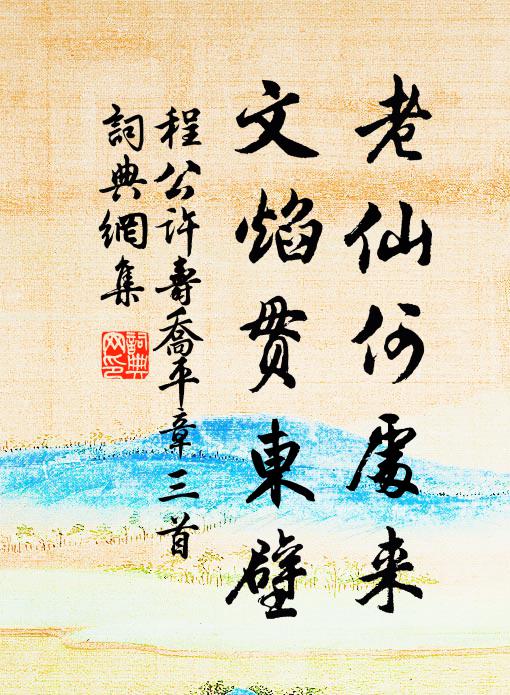 老仙何處来
文焰贯東壁
程公许壽喬平章三首
詞典網集
詞典網印